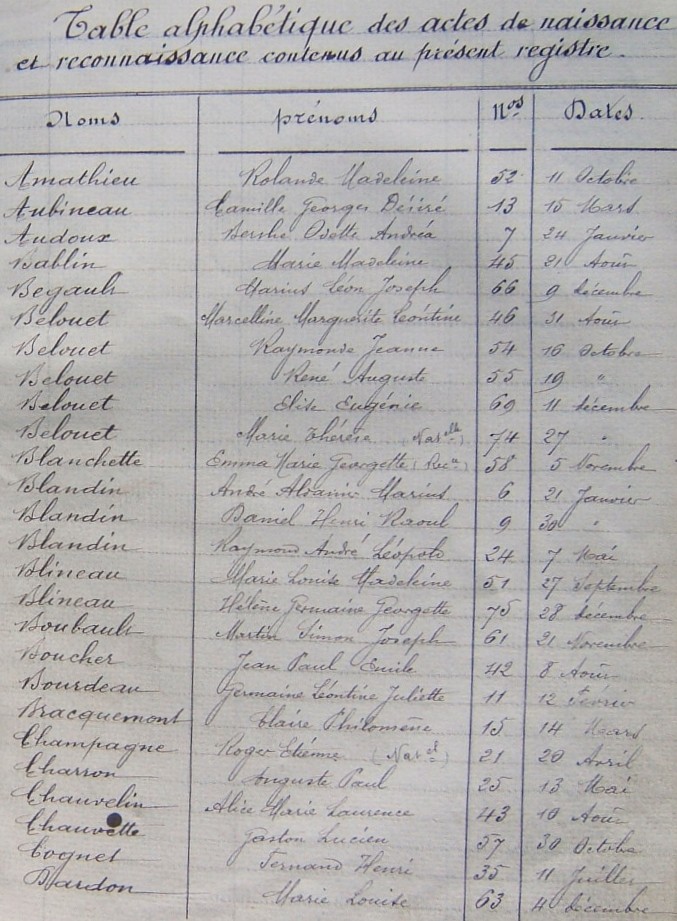 Table alphabétique des actes de naissance
et reconnaissance contenus au présent registre.
Noms prénoms Nos Dates.
Amathieu Rolande Madeleine 52 11 Octobre
Aubineau Camille Georges Désiré 13 15 Mars
Audoux Berthe Odette Andréa 7 24 Janvier
Bablin Marie Madeleine 45 21 Août
Begault Marius Léon Joseph 66 9 décembre
Belouet Marcelline Marguerite Léontine 46 31 Août
Belouet Raymonde Jeanne 54 16 Octobre
Belouet René Auguste 55 19 "
Belouet Elise Eugénie 69 11 décembre
Belouet Marie Thérèse (Natelle) 74 27 "
Blanchette Emma Marie Georgette (Recce) 58 5 Novembre
Blandin André Marius 6 21 Janvier
Blandin Daniel Henri Raoul 9 30 "
Blandin Raymond André Léopold 24 7 Mai
Blineau Marie Louise Madeleine 51 27 Septembre
Blineau Hélène Germaine Georgette 75 28 décembre
Boubault Martin Simon Joseph 61 21 Novembre
Boucher Jean Paul Emile 42 8 Août
Bourdeau Germaine Léontine Juliette 11 12 Février
Bracquemont Claire Philomène 15 14 Mars
Champagne Roger Etienne (Natel) 21 20 Avril
Charron Auguste Paul 25 13 Mai
Chauvelin Alice Marie Laurence 43 10 Août
Chauvette Gaston Lucien 57 30 Octobre
Cognet Fernand Henri 35 11 Juillet
Dardon Marie Louise 63 4 décembre